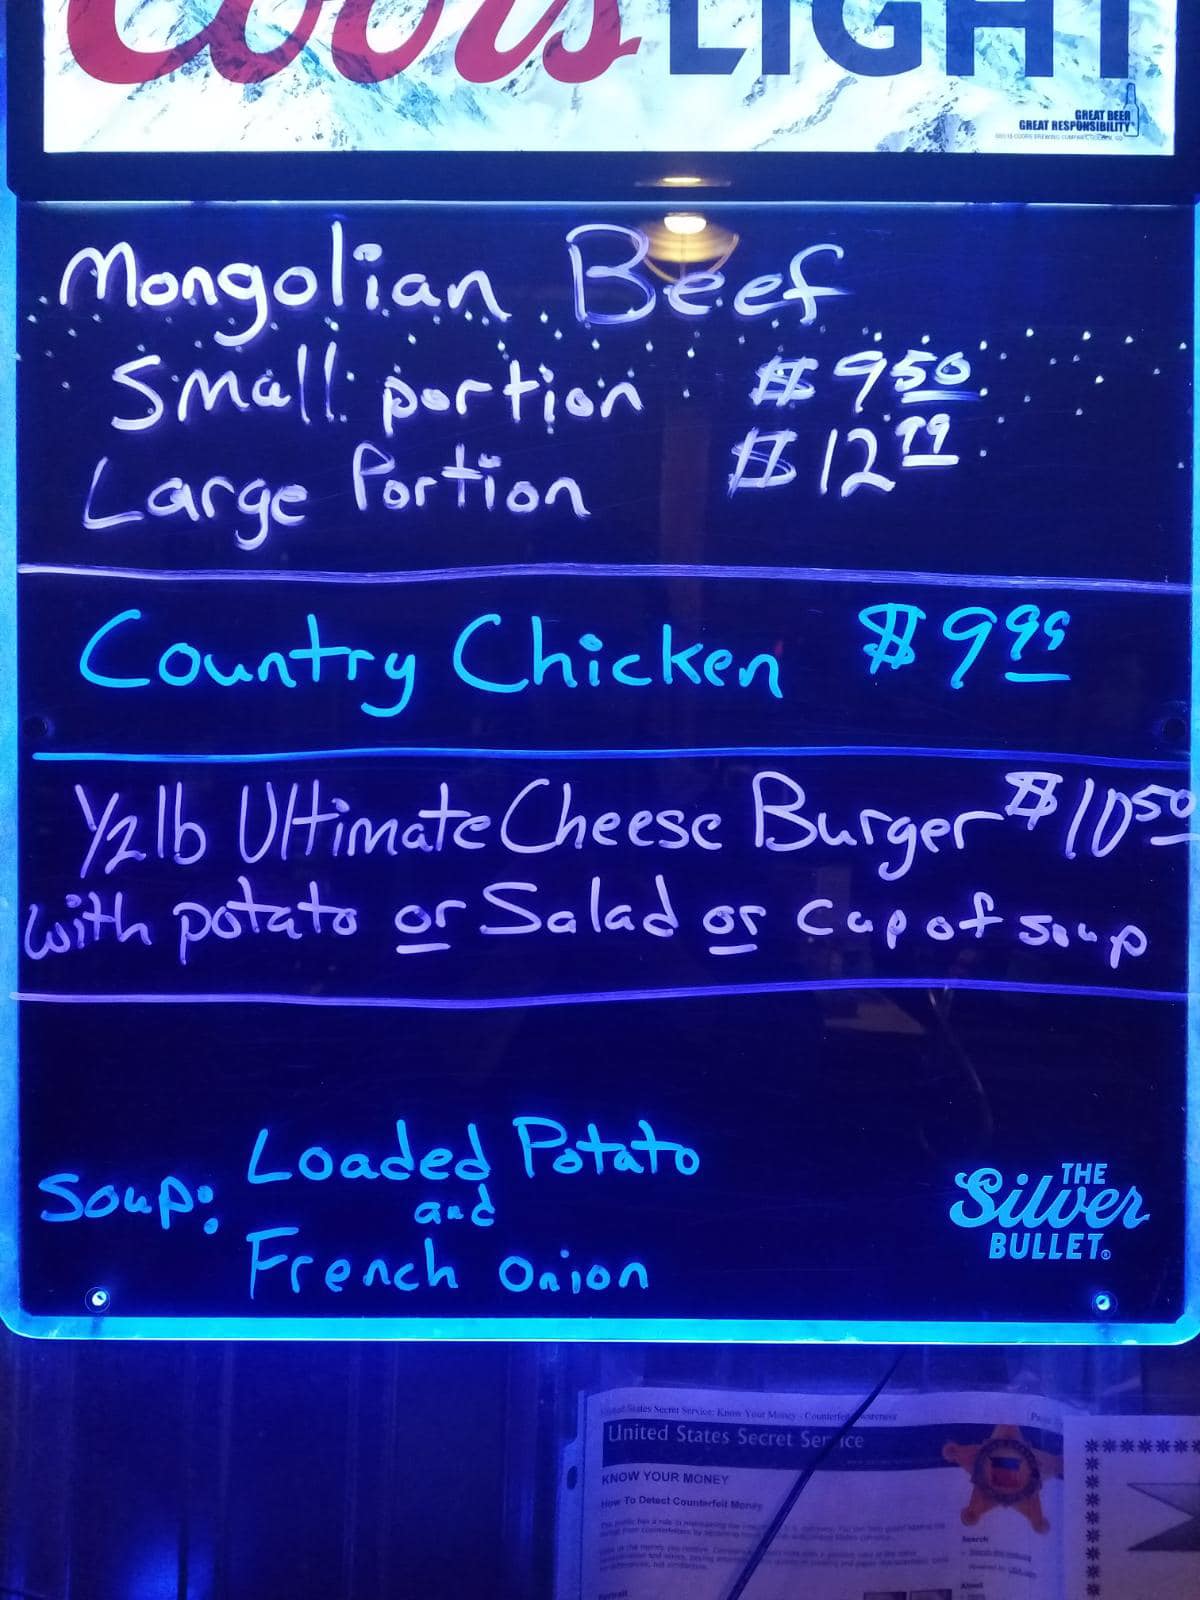 Coors LIGHT
GREAT BEER
GREAT RESPONSIBILITY
Mongolian Beef
Small portion $9.50
Large Portion $12.99
Country Chicken $9.99
1/2 lb Ultimate Cheese Burger $10.50
with potato or Salad or Cup of soup
Soup: Loaded Potato
and
French Onion
THE
Silver
BULLET®
United States Secret Service: Know Your Money - Counterfeit Awareness
United States Secret Service
KNOW YOUR MONEY
How To Detect Counterfeit Money
Search
Portrait
About